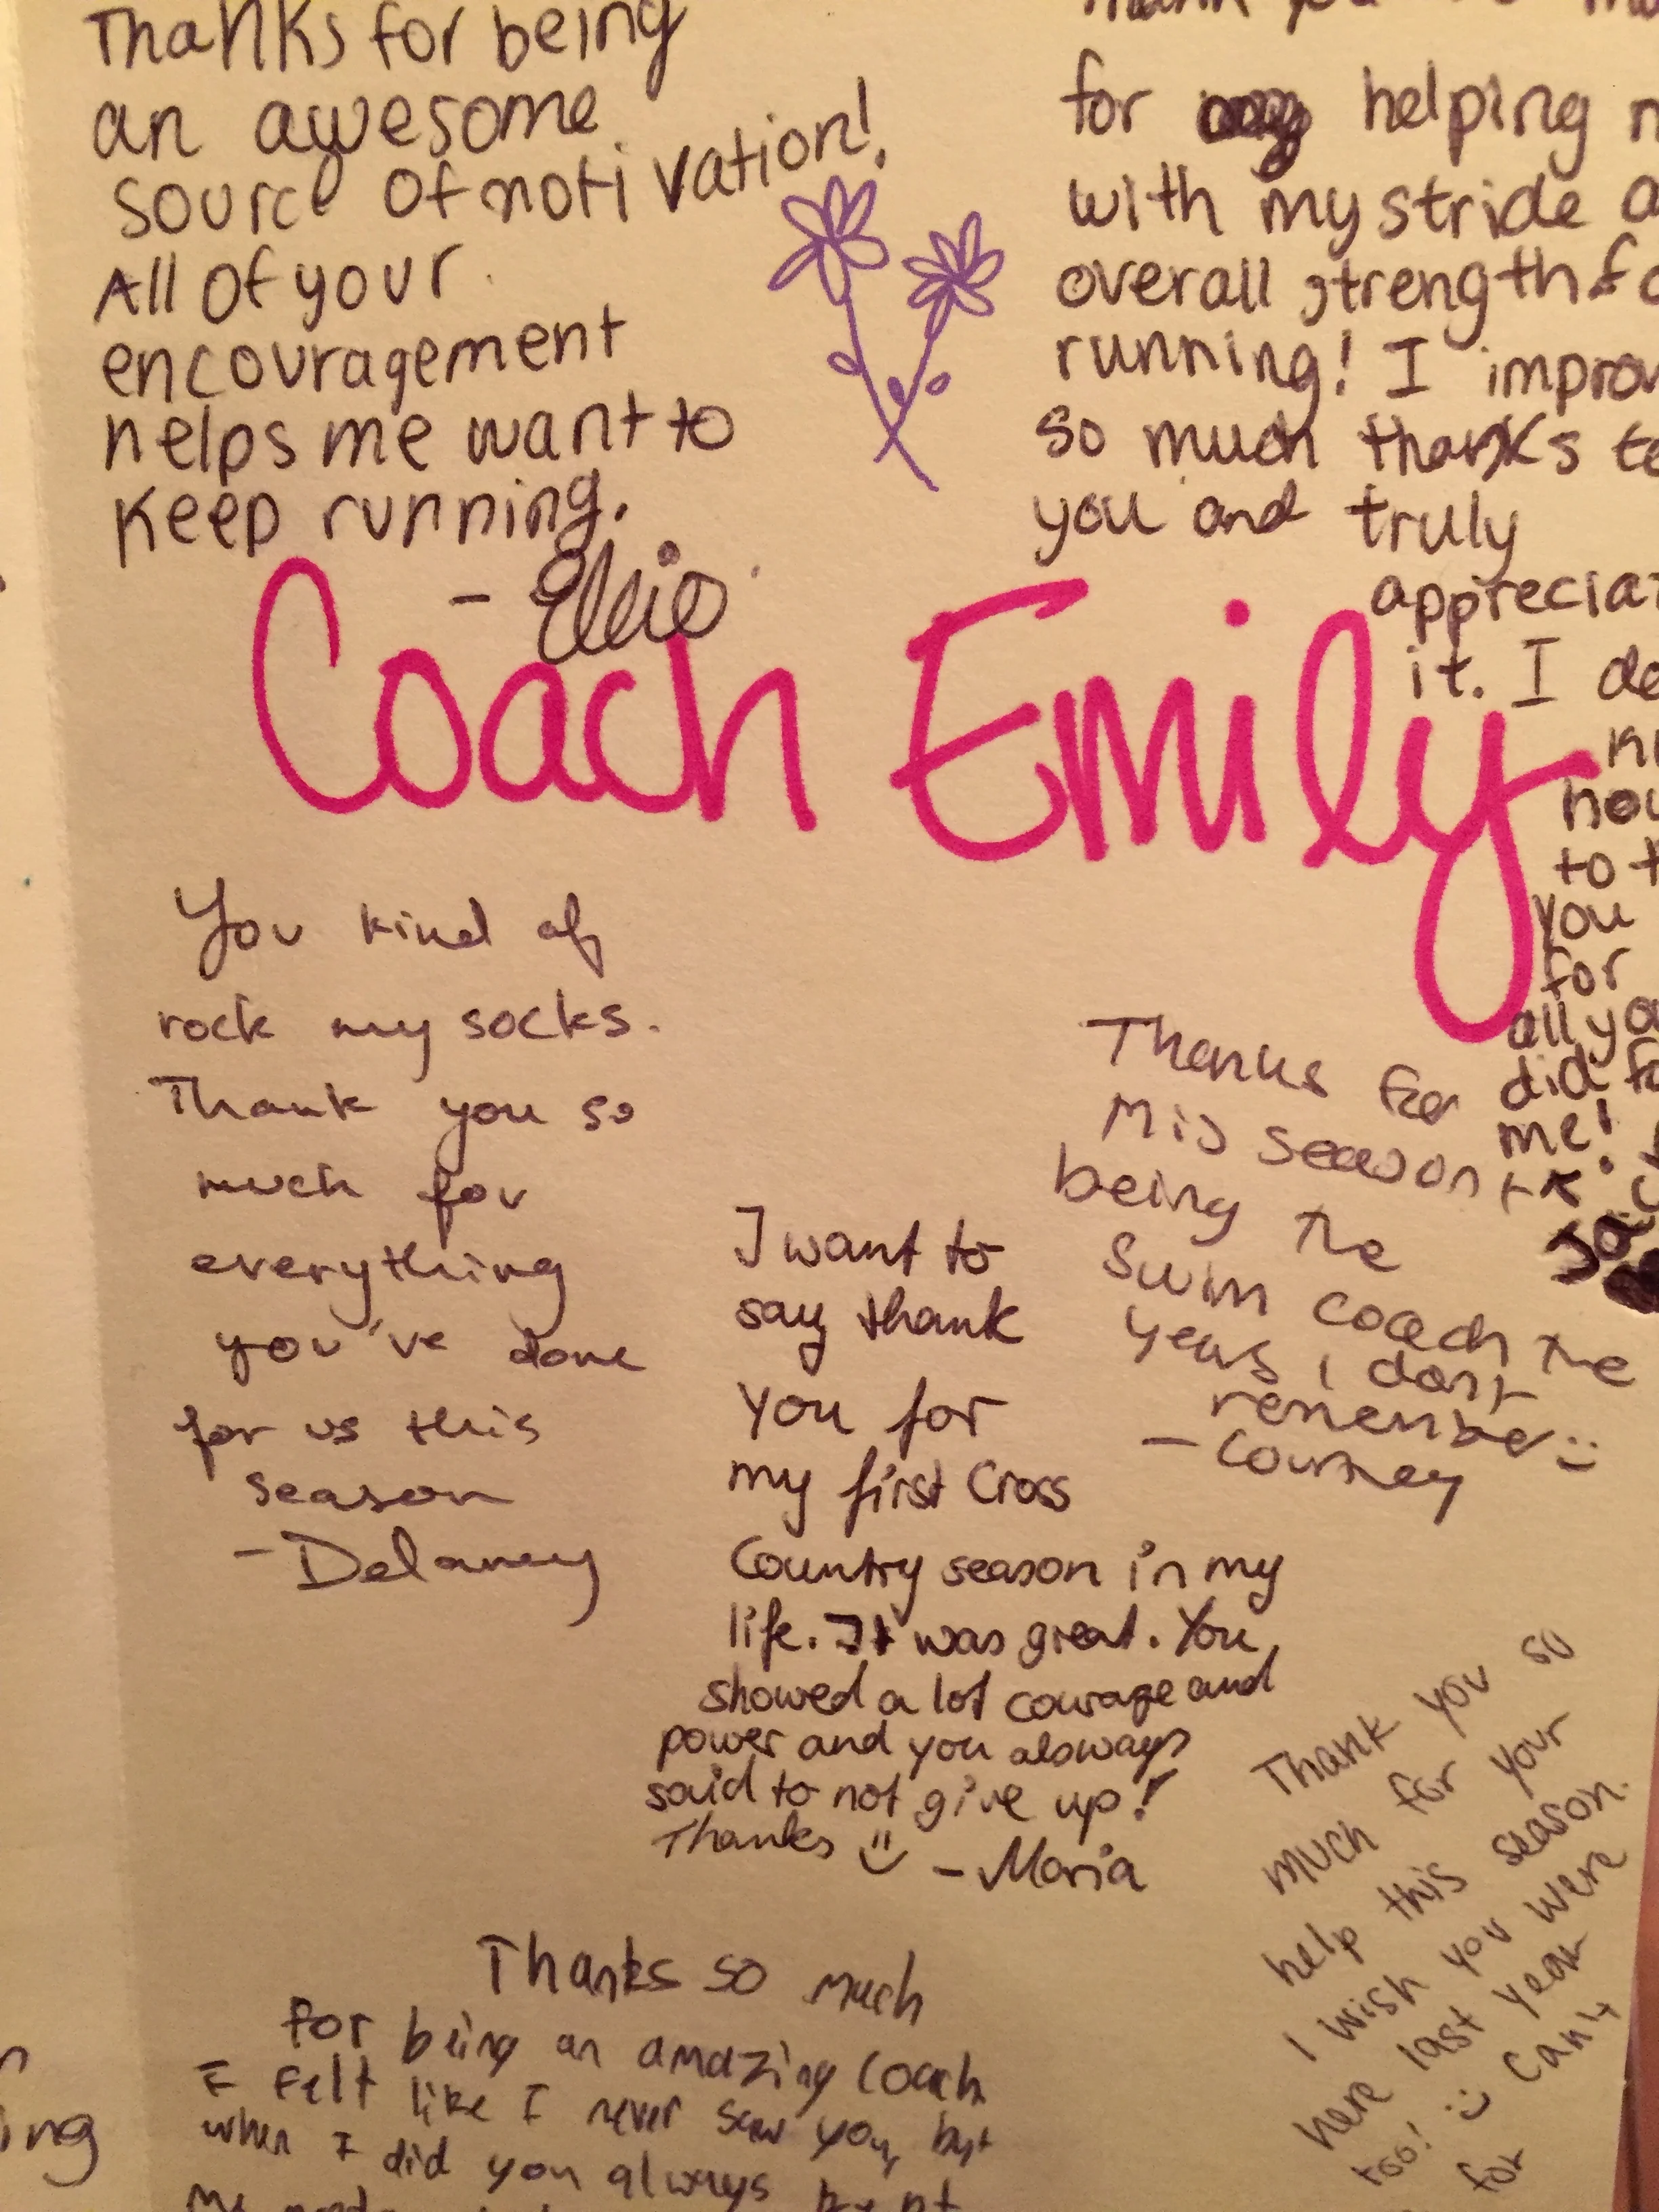 Thanks for being
an awesome
source of motivation!
All of your
encouragement
helps me want to
keep running.
- Ellie
for helping
with my stride
overall strength
running! I
so much thanks
you and truly
it. I
to
you
for
all
did
me!
Coach Emily
You kind of
rock my socks.
Thank you so
much for
everything
you've done
for us this
season
- Delaney
I want to
say thank
you for
my first Cross
Country season in my
life. It was great. You
showed a lot courage and
power and you always
said to not give up!
Thanks :) - Maria
Thanks for
this season +
being the
swim coach the
years I don't
remember :)
- Courtney
Thank you so
much for your
help this season.
I wish you were
here last year
too! :) Can't
for
Thanks so much
for being an amazing coach
I felt like I never saw you, but
when I did you always
me
ing